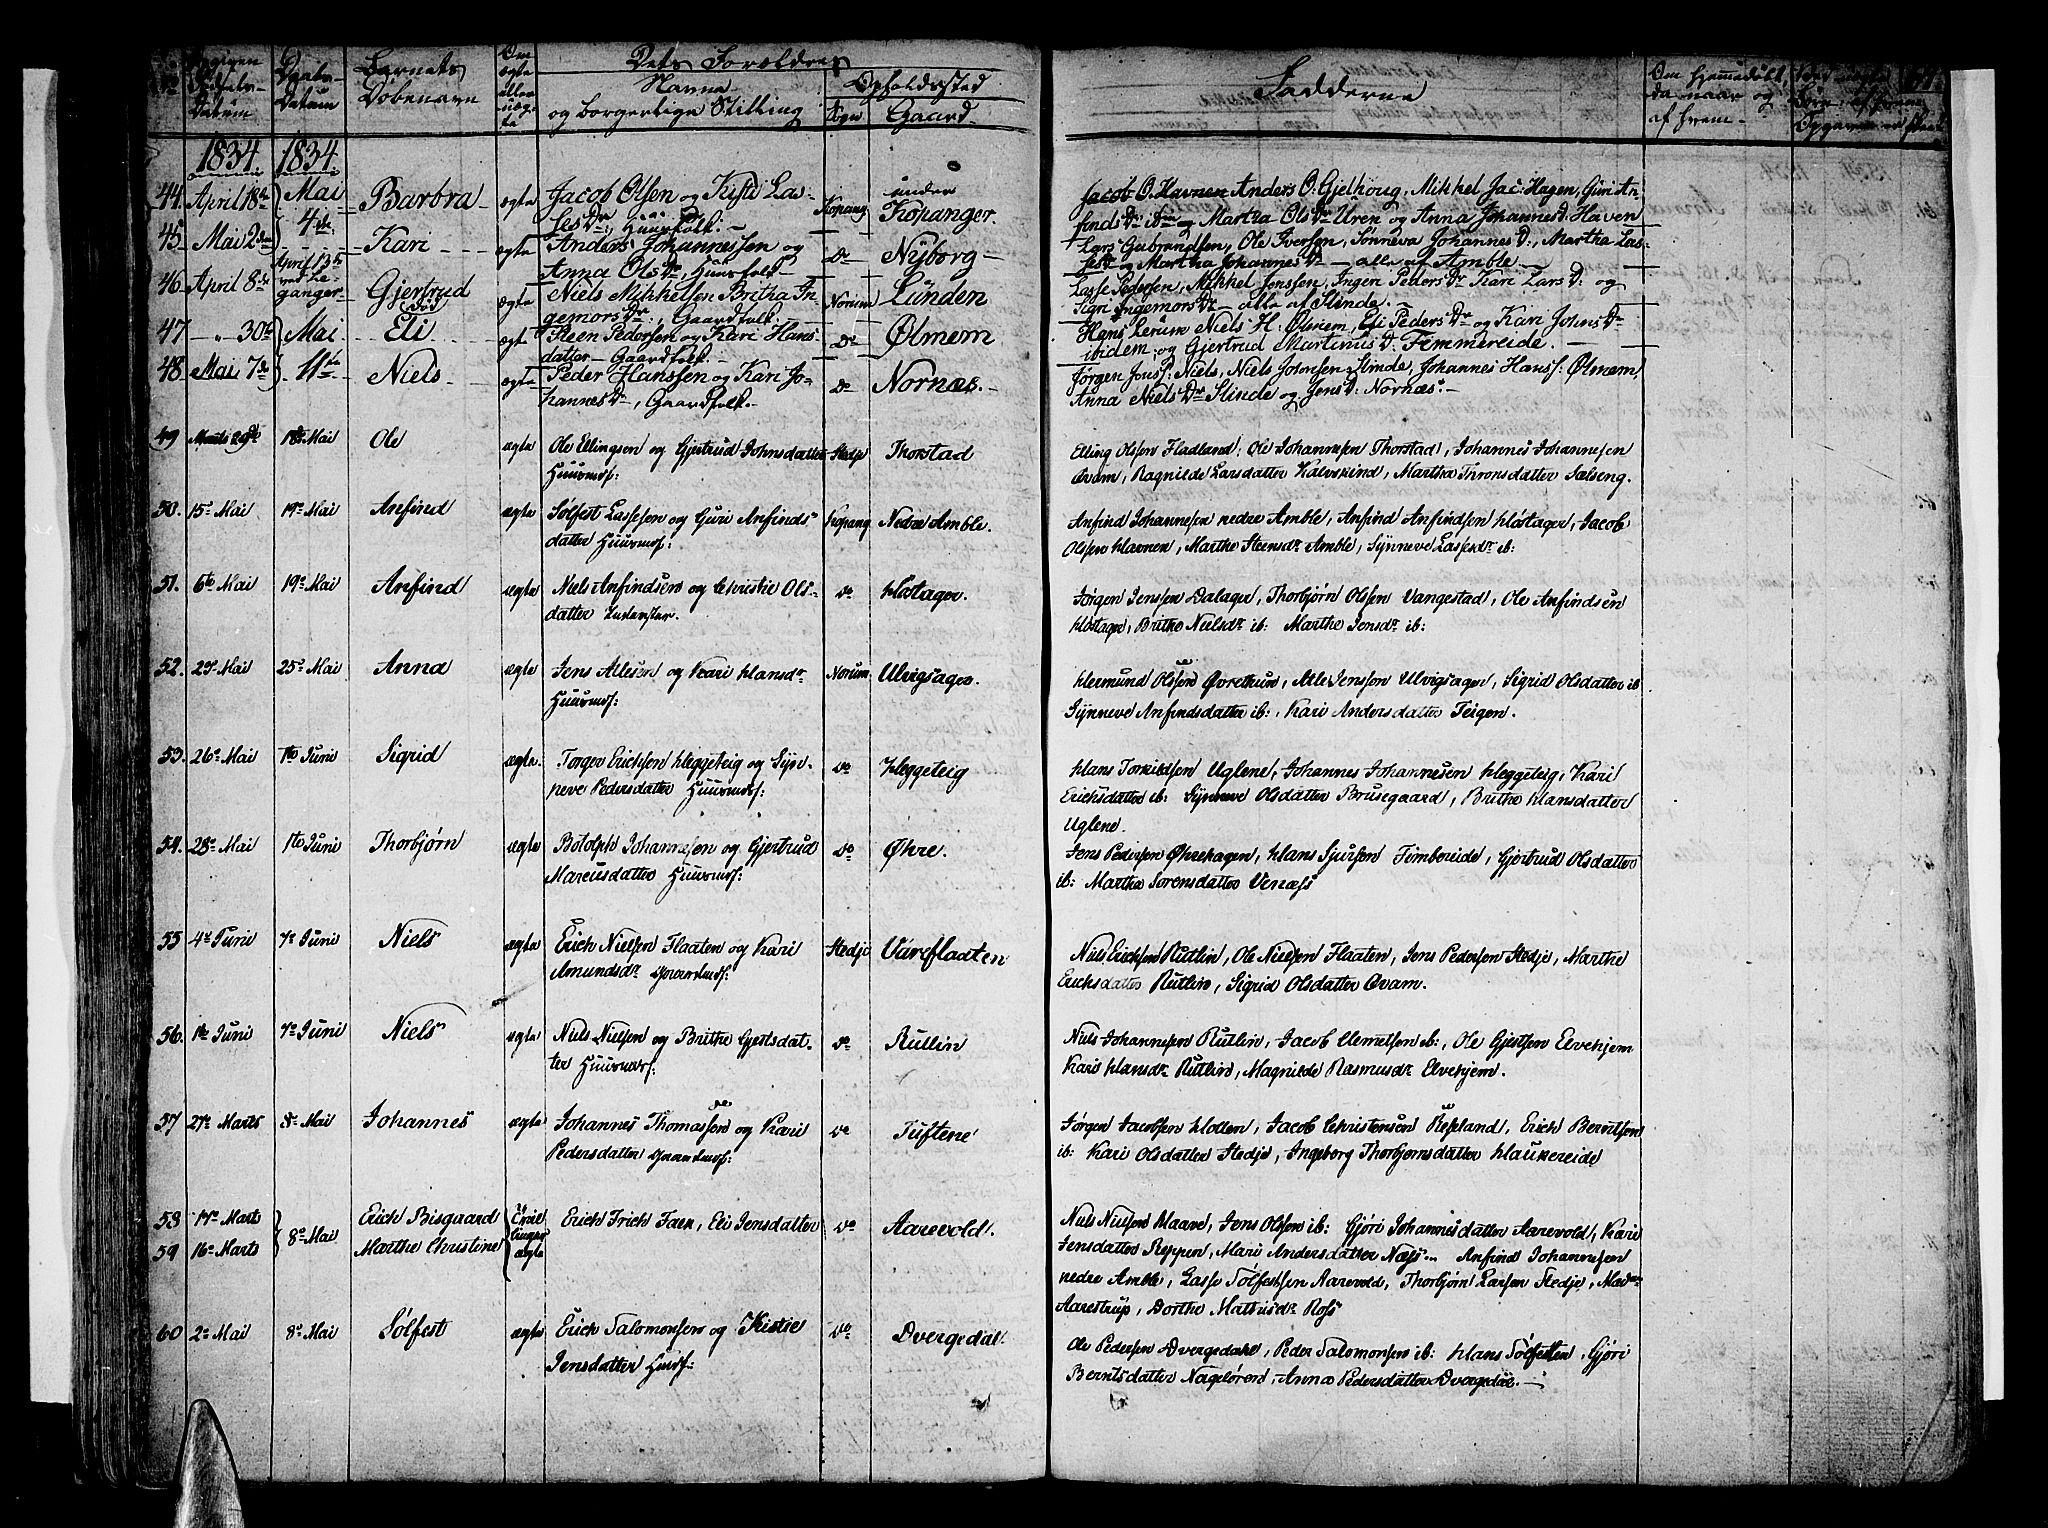 Barnets Døbenavn
Dets Forældres
Navne og borgerlige Stilling
Opholdssted
Sogn Gaard
Fadderne
1834. 1834.
44. April 18de Mai 4de Barbra ægte Jacob Olsen og Kisti Las-
ses Dr, Huusfolk. Kopang under Kopanger
Jacob O. Havnen Anders O: Gjelhoug, Mikkel Jac: Hagen, Guri An-
finds Dr og Martha Ols Dr Uren og Anna Johannes D. Haven
45. Mai 2den Kari ægte Anders Johannessen og
Anna Ols Dr, Huusfolk Do Nyborg
Lars Gubrandsen, Ole Iversen, Sønneva Johannes D:, Martha Las-
ses Dr og Martha Johannes D - alle af Amble
46 April 8de April 13de Gjertrud ægte Niels Mikkelsen Britha In-
gemors Dr, Gaardfolk. Norum Lunden
Lasse Pedersen, Mikkel Jonssen, Ingen Peders Dr Kari Lars D: og
Sigri Ingemors Dr - alle af Slinde.
47 " 30te Mai 11te Eli ægte Steen Pedersen og Kari Hans
datter - Gaardfolk. Do Ølmem
Hans Lerum Niels H: Ølmem, Eli Peders Dr og Kari Johns Dr
ibidem, og Gjertrud Martinus D. Femmereide.
48 Mai 7de Niels ægte Peder Hanssen og Kari Jo-
hannes Dr, Gaardfolk. Do Nornæs.
Jørgen Jens S: Niels, Niels Johnsen Slinde, Johannes Hans S: Ølmem,
Anna Niels Dr Slinde og Jens D: Nornæs.
49 18de Mai Ole ægte Ole Ellingsen og Gjertrud Johnsdatter Stedje Thorstad
Huusmdf:
Elling Olsen Fladland, Ole Johannesen Thorstad, Johannes Johannesen
Qvam, Ragnilde Larsdatter Kalvskind, Martha Thronsdatter Sælseng.
50. 15de Mai 19de Mai Anfind ægte Sølfest Lassesen og Guri Anfinds
datter Huusmdf: Kopang Nedre Amble.
Anfind Johannesen nedre Amble, Anfind Anfindsen Kløstager, Jacob
Olsen Havnen, Martha Steensdr Amble, Synneve Lassesdr ib:
51. 6te Mai 19de Mai Anfind ægte Niels Anfindsen og Christie Ols-
datter Inderster. do Kløstager.
Jørgen Jenssen Dalager, Thorbjørn Olssen Vangestad, Ole Anfindsen
Kløstager, Brithe Nielsdr ib: Marthe Jensdr ib:
52 25de Mai Anna ægte Jens Allesen og Kari Hansdr
Huusmdf: Norum Ulvigsager.
Hermund Olsen Øvrethun, Alle Jenssen Ulvigsager, Sigrid Olsdatter ib
Synneve Anfindsdatter ib:, Kari Andersdatter Teigen.
53. 26de Mai 1te Juni Sigrid ægte Torger Erichsen Heggeteig og Syn-
neve Pedersdatter Huusmdf: do Heggeteig
Hans Torkildsen Uglene, Johannes Johannesen Heggeteig, Kari
Erichsdatter ib: Synneve Olsdatter Brusegaard, Brithe Hansdatter
Uglene.
54. 28de Mai 1te Juni Thorbjørn ægte Botolph Johannesen og Gjertrud
Marcusdatter Huusmdf: do Øhre.
Jens Pedersen Øhrehagen, Hans Sjursen Fimbereide, Gjertrud Olsdatter
ib: Martha Sorensdatter Venæss
55 4de Juni 7de Juni Niels ægte Erich Nielsen Flaaten og Kari
Amundsdr Gaardmdf: Stedje Vareflaaten
Niels Erichsen Rutlin, Ole Nielsen Flaaten, Jens Pedersen Stedje, Marthe
Erichsdatter Rutlin, Sigrid Olsdatter Qvam.
56. 1te Juni 7de Juni Niels ægte Niels Nielsen og Brithe Gjestsdat-
ter Huusmdf: do Rutlin
Niels Johannesen Rutlin, Jacob Clemetsen ib:, Ole Gjestsen Elvehjem
Kari Hansdr Rutlin, Magnilde Rasmusdr Elvehjem.
57 27de Marts 8de Mai Johannes ægte Johannes Thomassen og Kari
Pedersdatter Gaardmdf: do Tuftene
Jørgen Jacobsen Hollen, Jacob Christensen Røseland, Erich Berntsen
ib: Kari Olsdatter Stedje, Ingeborg Thorbjornsdatter Haukereide
58 17de Marts 8de Mai Erich Bisgaard
59 16de Marts Marthe Christine Tvillinger ægte
Erich Frich Faen, Eli Jensdatter do Aarevold.
Niels Nielsen Haave, Jens Olssen ib: Gjøri Johannesdatter Aarevold, Kari
Jensdatter Reppen, Mari Andersdatter Næss. Anfind Johannesen
nedre Amble, Lasse Sølfestsen Aarevold, Thorbjørn Larsen Stedje, Mad:
Aarestrup, Dorthe Mathisdr Ross
60 2de Mai 8de Mai Sølfest ægte Erich Salomonsen og Kistie
Jensdatter Husf: do Dvergedal.
Ole Pedersen Dvergedahl, Peder Salomonsen ib: Hans Sølfesten, Gjøri
Berntsdatter Nagløren, Anna Pedersdatter Dvergedal.